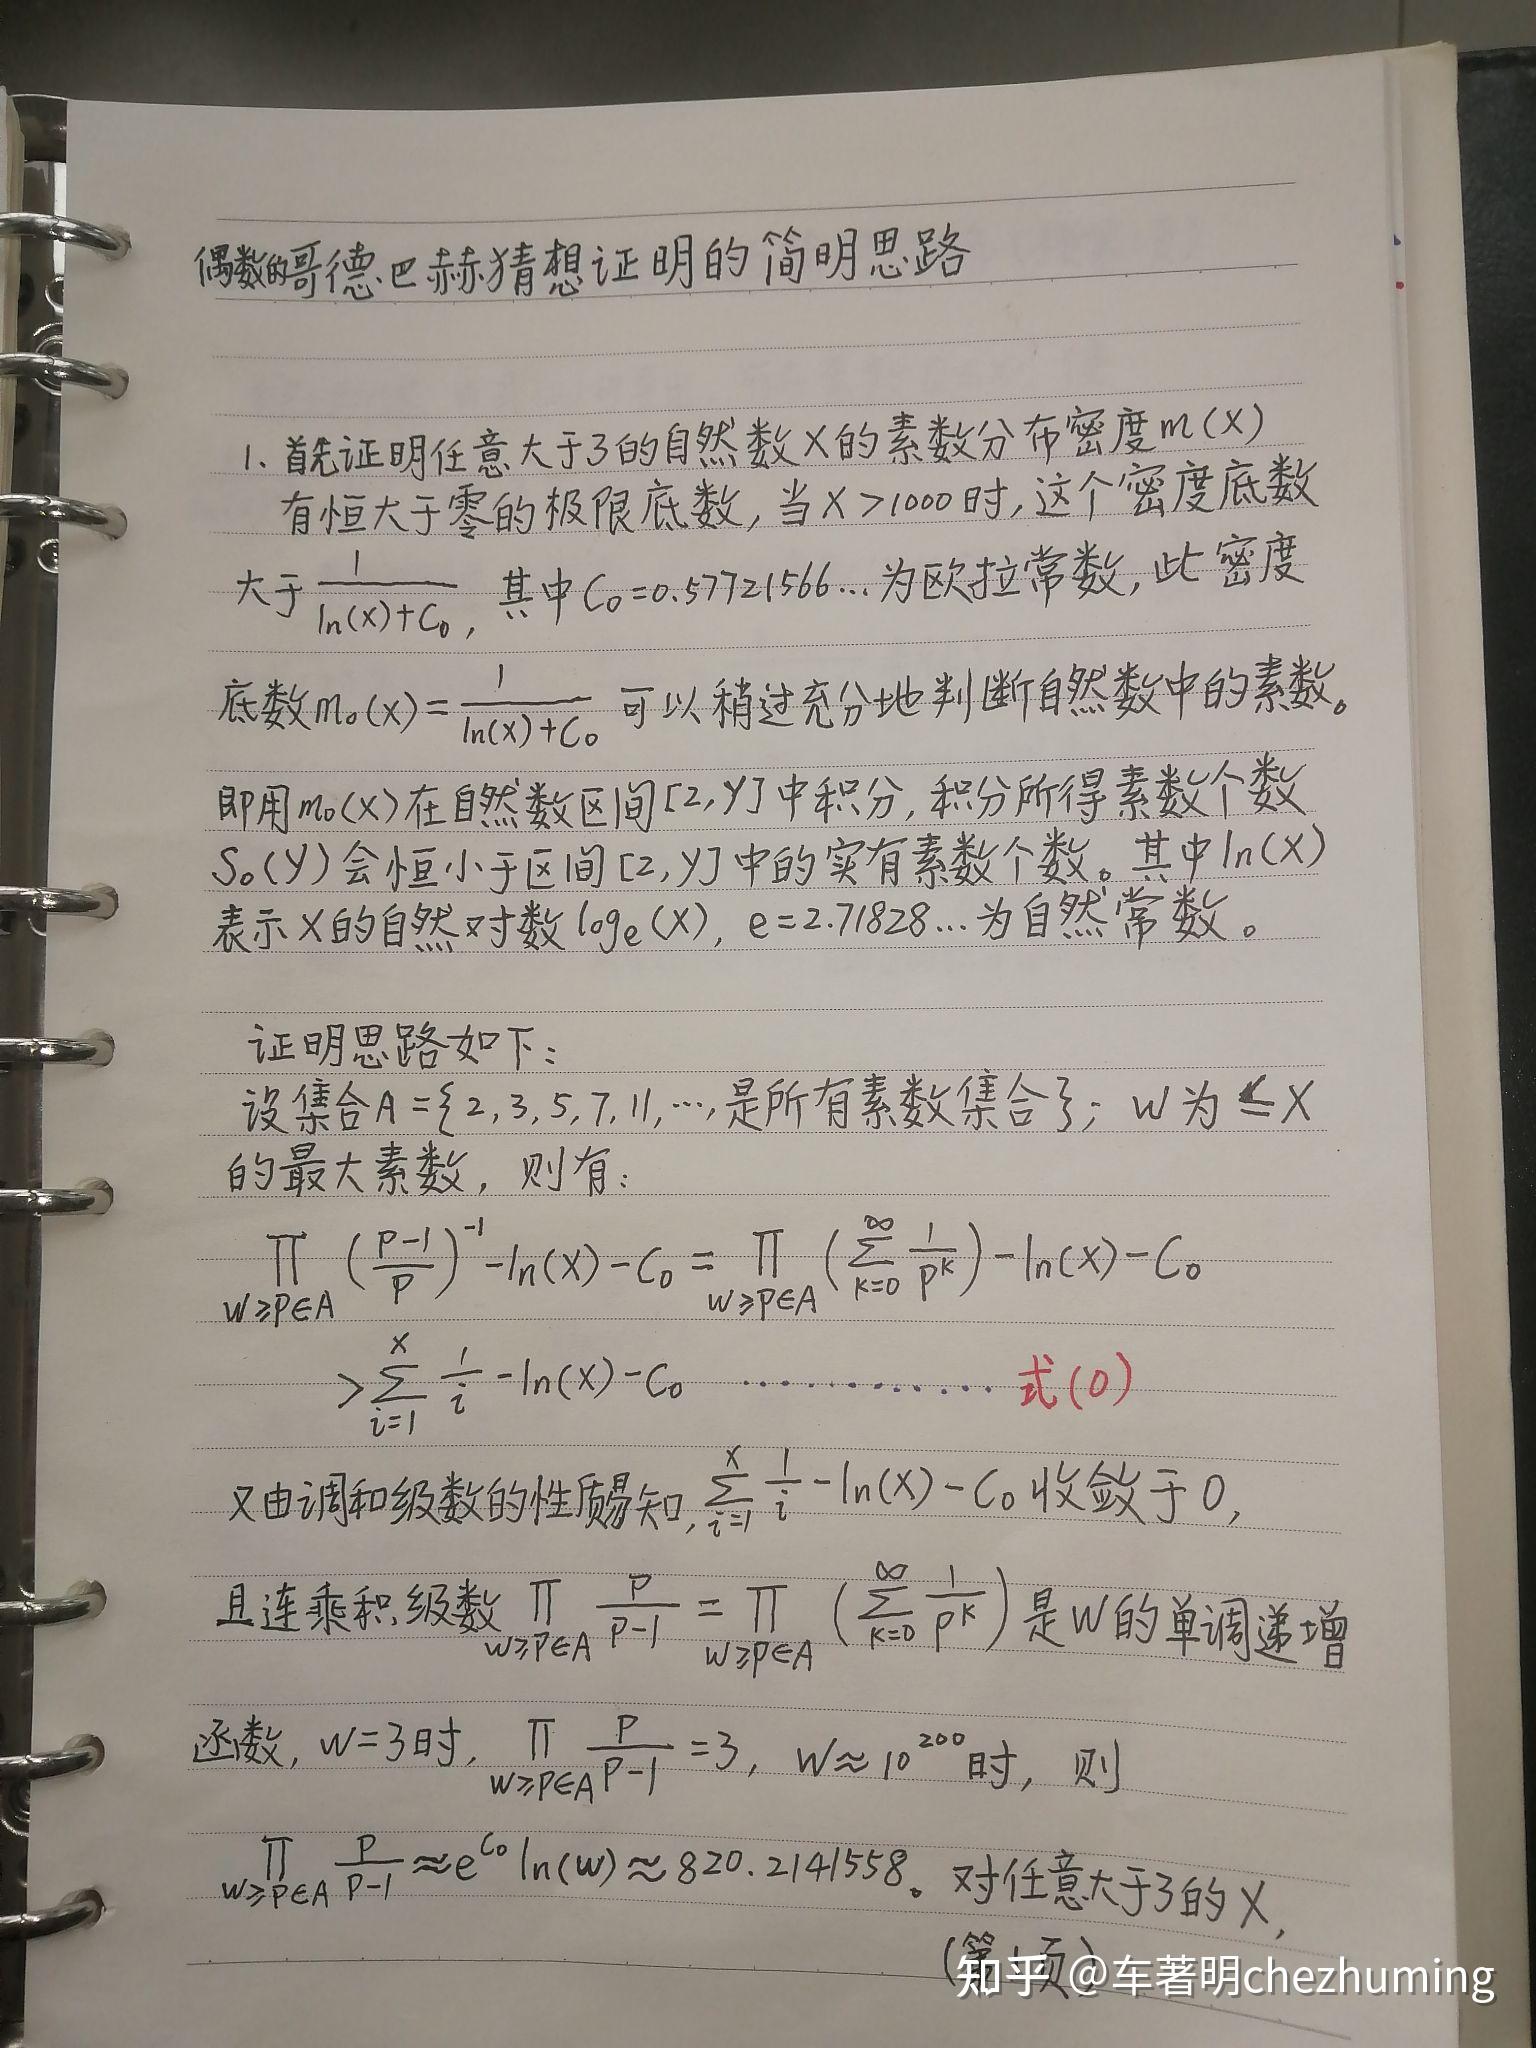 偶数的哥德巴赫猜想证明的简明思路
1. 首先证明任意大于3的自然数X的素数分布密度m(X)
有恒大于零的极限底数, 当X>1000时, 这个密度底数
大于 1/(ln(X)+C₀), 其中C₀=0.57721566…为欧拉常数, 此密度
底数m₀(X)=1/(ln(X)+C₀) 可以稍过充分地判断自然数中的素数。
即用m₀(X)在自然数区间[2,Y]中积分, 积分所得素数个数
S₀(Y)会恒小于区间[2,Y]中的实有素数个数。其中ln(X)
表示X的自然对数logₑ(X), e=2.71828…为自然常数。
证明思路如下:
设集合A={2,3,5,7,11,…,是所有素数集合}; W为≤X
的最大素数, 则有:
∏_{W≥P∈A} ((P-1)/P)^{-1} -ln(X)-C₀ = ∏_{W≥P∈A} (∑_{K=0}^{∞} 1/P^K) -ln(X)-C₀
>∑_{i=1}^{X} 1/i -ln(X)-C₀ ………… 式(0)
又由调和级数的性质易知, ∑_{i=1}^{X} 1/i -ln(X)-C₀ 收敛于0,
且连乘积级数 ∏_{W≥P∈A} P/(P-1) = ∏_{W≥P∈A} (∑_{K=0}^{∞} 1/P^K) 是W的单调递增
函数, W=3时, ∏_{W≥P∈A} P/(P-1) =3, W≈10^{200}时, 则
∏_{W≥P∈A} P/(P-1) ≈e^{C₀} ln(W)≈820.2141558。对任意大于3的X,
(第1页)
知乎 @车著明chezhuming